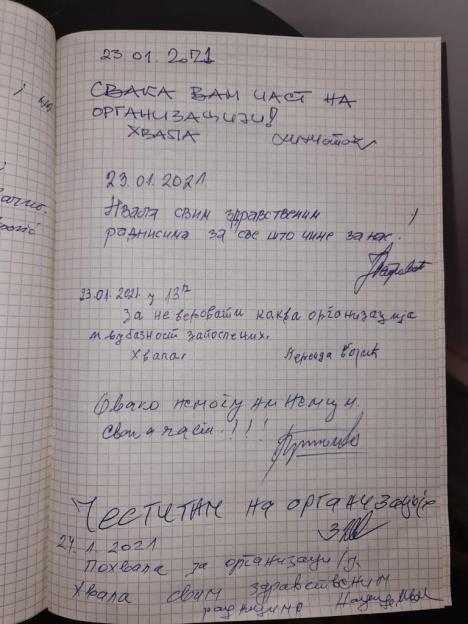 23.01.2021
СВАКА ВАМ ЧАСТ НА
ОРГАНИЗАЦИЈИ!
ХВАЛА
23.01.2021.
Хвала свим здравственим
радницима за све што чине за нас.
23.01.2021. у 13
За не веровати каква организација
и љубазност запослених.
Хвала.
Овако немогу ни Немци.
Свака част!!!
Честитам на организацији
24.1.2021
Похвала за организацију.
Хвала свим здравственим
радницима